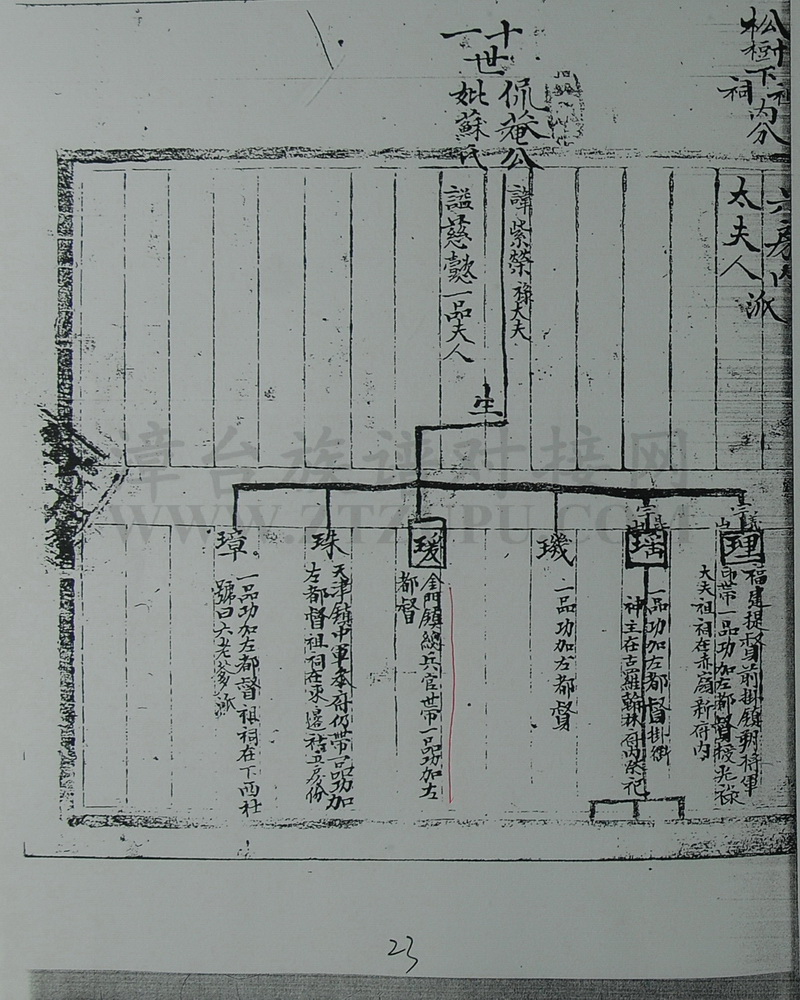 松樹下祠內分
太夫人派
十一世
侃菴公
妣蘇氏
諱紫榮祿大夫
謚慈懿一品夫人
生
理
福建提督前掛鎮朔將軍
印帶一品功加左都督授光祿
大夫祖祠在赤嶺新府內
瑞
一品功加左都督掛銜
神主在古羅翰林府內崇祀
璣
一品功加左都督
瑗
金門鎮總兵官世帶一品功加左
都督
珠
天津鎮中軍參府仍帶一品功加
左都督祖祠在東邊祜五房份
璋
一品功加左都督祖祠在下西社
號曰六老爹派
漳台族谱对接网
WWW.ZTZUPU.COM
23